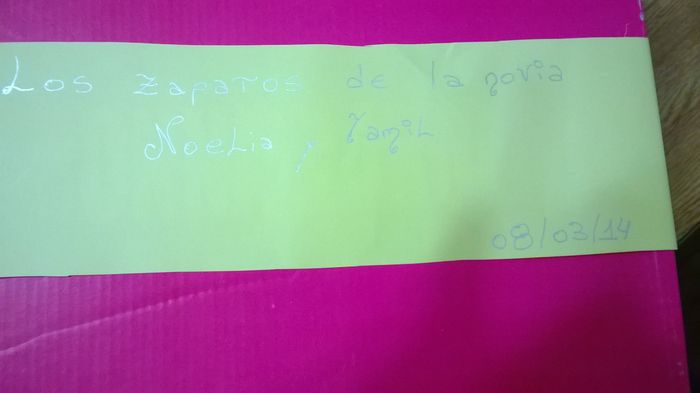 Los zapatos de la novia
Noelia y Yamil
08/03/14